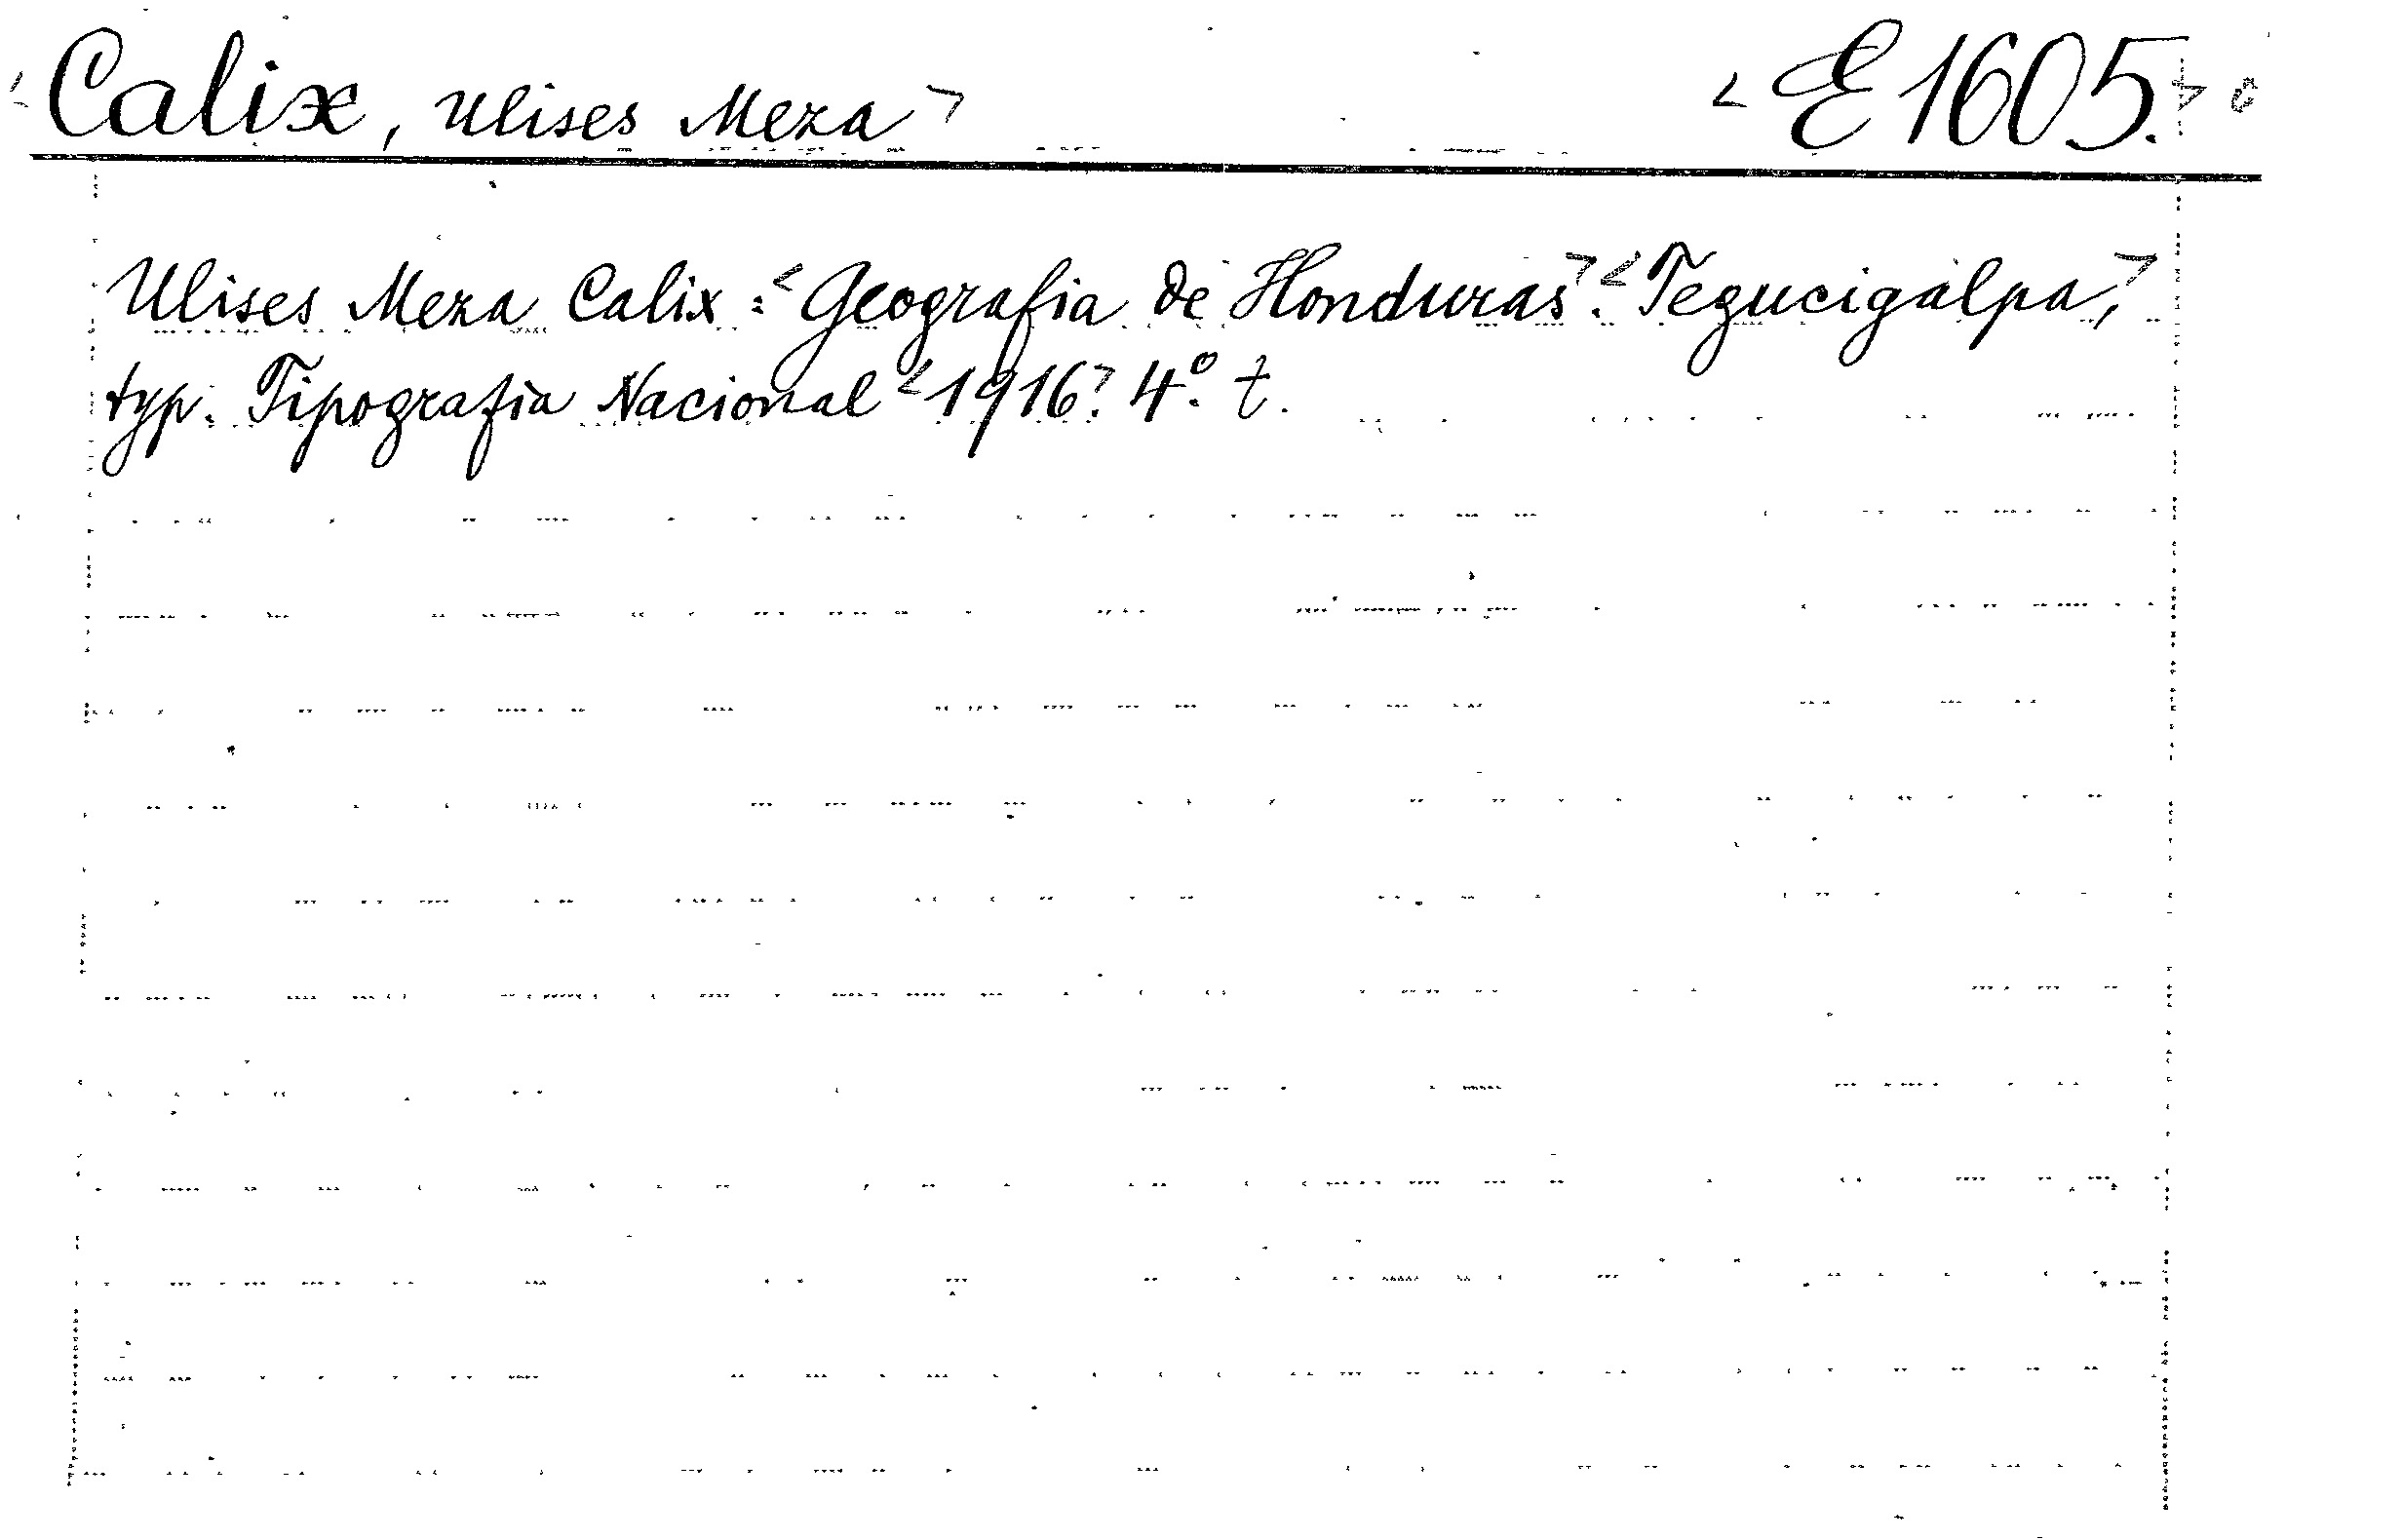 <Calix, Ulises Meza> <E1605.>
Ulises Meza Calix: <Geografia de Honduras>. <Tegucigalpa,>
typ. Tipografia Nacional <1916>. 4º. t.